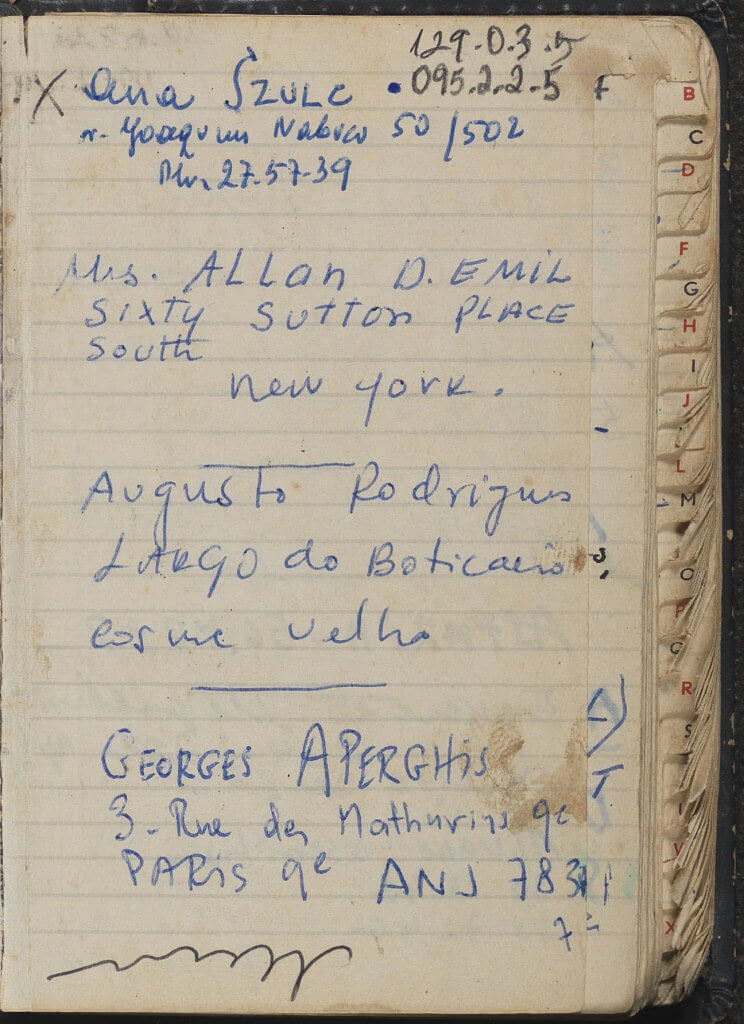 129.0.3.5
X Ana SZULC • 095.2.2-5
r. Joaquim Nabuco 50/502
Ph. 27-57-39
Mrs. ALLan D. EMIL
SIXTY SUTTON PLACE
South
new york.
Augusto Rodrigues
LARGO do Boticario
cosme velho
GEORGES APERGHIS
3 - Rue des Mathurins 9e
PARIS 9e ANJ 783
B
C
D
F
G
H
I
J
L
M
O
P
Q
R
S
V
X